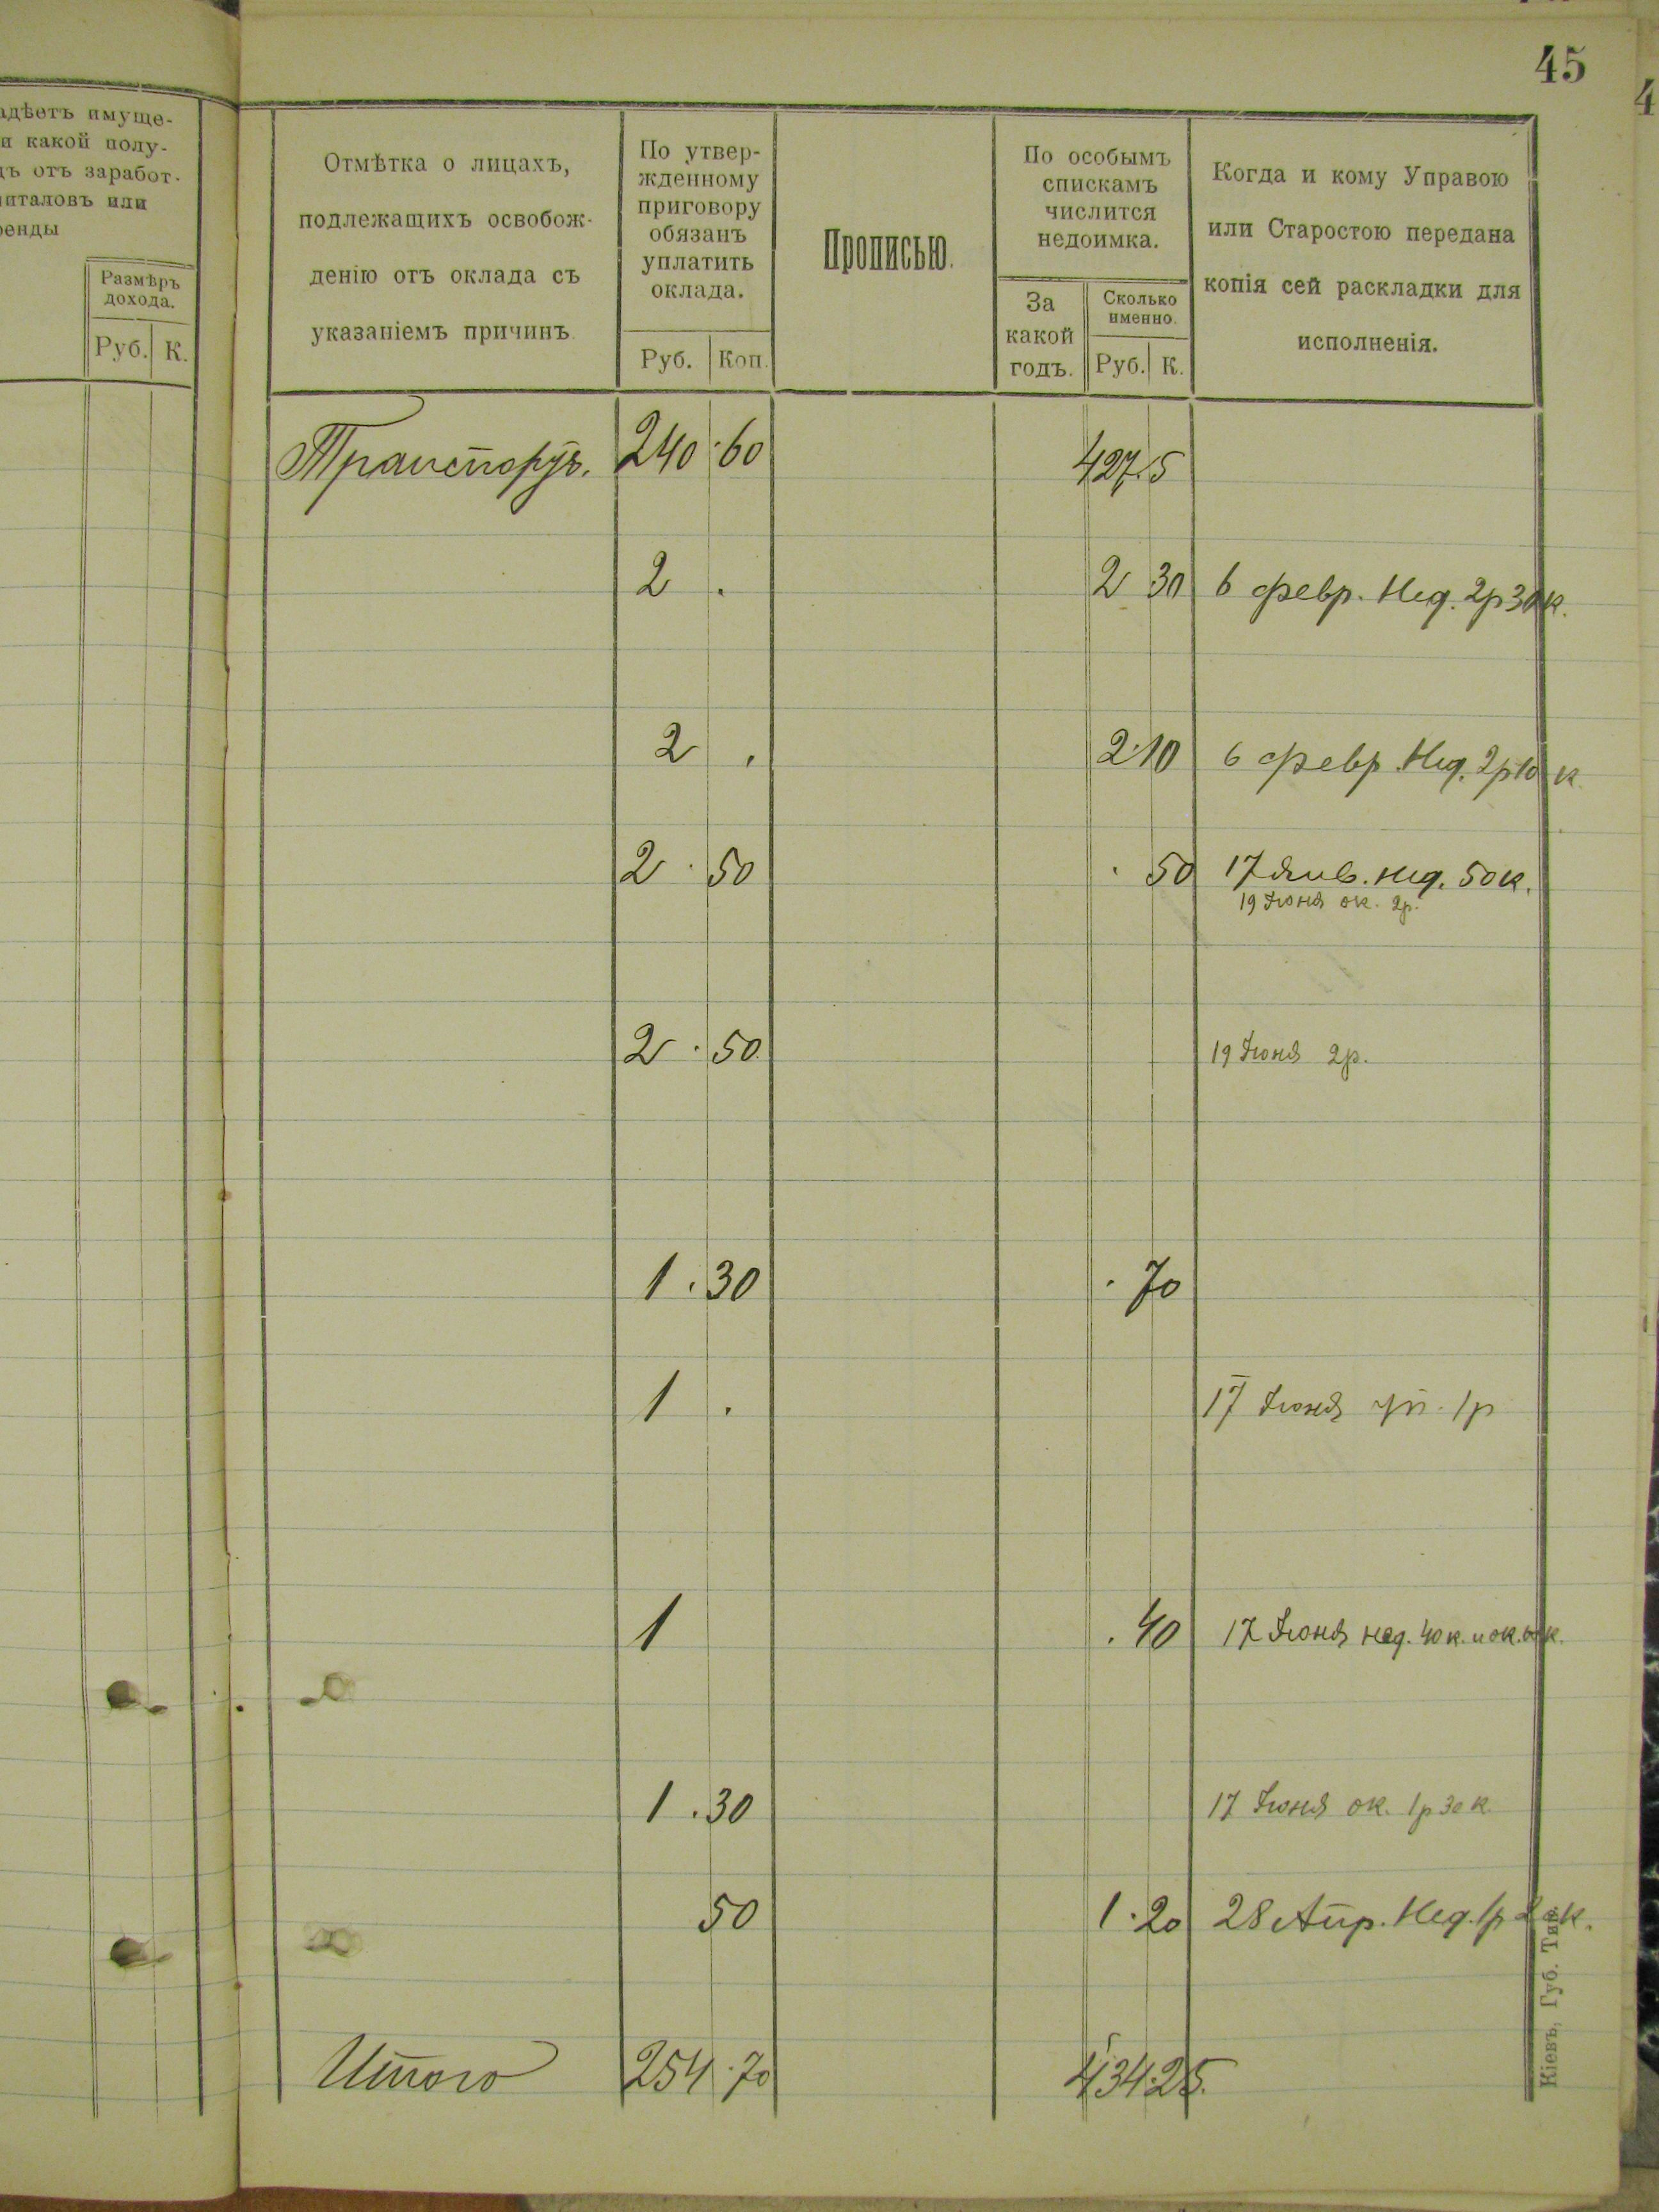 45
4
адѣетъ имуще-
и какой полу-
дъ отъ заработ-
апиталовъ или
ренды
Размѣръ
дохода.
Руб. К.
Отмѣтка о лицахъ,
подлежащихъ освобож-
денію отъ оклада съ
указаніемъ причинъ.
По утвер-
жденному
приговору
обязанъ
уплатить
оклада.
Руб. Коп.
Прописью.
По особымъ
спискамъ
числится
недоимка.
За
какой
годъ.
Сколько
именно.
Руб. К.
Когда и кому Управою
или Старостою передана
копія сей раскладки для
исполненія.
Транспортъ. 240 60 427.5
2 . 2 30 6 февр. Нед. 2р 30 к.
2 . 2 10 6 февр. Нед. 2р 10 к.
2 . 50 . 50 17 Янв. нед. 50 к.
19 Іюня ок. 2р.
2 . 50 19 Іюня 2р.
1 . 30 . 70
1 . 17 Іюня уп. 1р
1 . 40 17 Іюня нед. 40 к. и ок. 60 к.
1 . 30 17 Іюня ок. 1р 30 к.
50 1 . 20 28 Апр. Нед. 1р 20 к.
Итого 254 . 70 434.25.
Кіевъ, Губ. Тип.